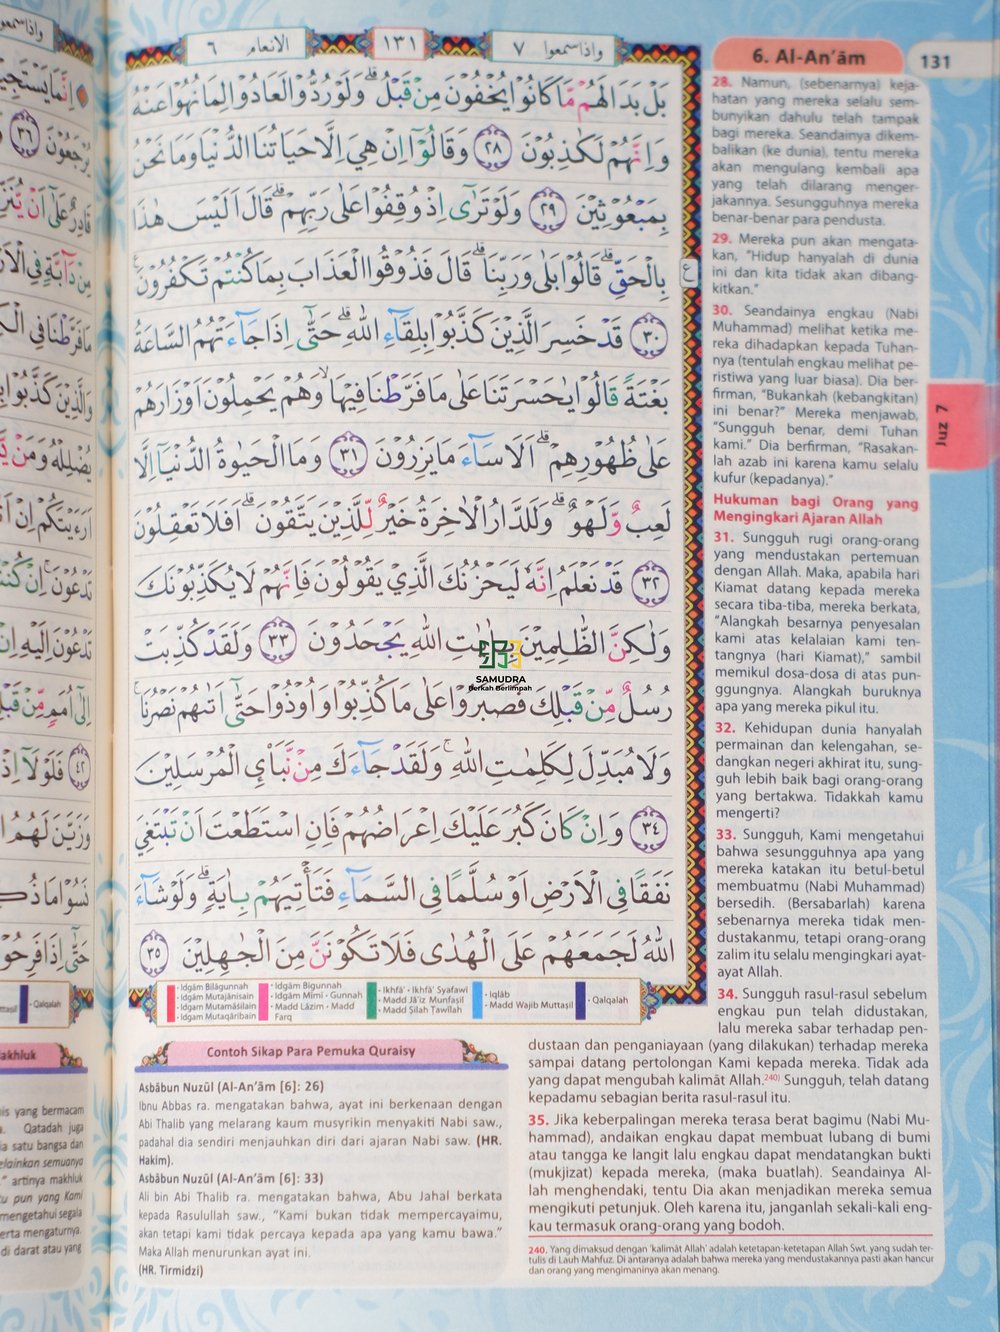 واذاسمعوا ٧
١٣١
الانعام ٦
بَلْ بَدَا لَهُمْ مَّا كَانُوْا يُخْفُوْنَ مِنْ قَبْلُ ۗ وَلَوْ رُدُّوْا لَعَادُوْا لِمَا نُهُوْا عَنْهُ
وَاِنَّهُمْ لَكٰذِبُوْنَ ٢٨ وَقَالُوْٓا اِنْ هِيَ اِلَّا حَيَاتُنَا الدُّنْيَا وَمَا نَحْنُ
بِمَبْعُوْثِيْنَ ٢٩ وَلَوْ تَرٰٓى اِذْ وُقِفُوْا عَلٰى رَبِّهِمْ ۗ قَالَ اَلَيْسَ هٰذَا
بِالْحَقِّ ۗ قَالُوْا بَلٰى وَرَبِّنَا ۗ قَالَ فَذُوْقُوا الْعَذَابَ بِمَا كُنْتُمْ تَكْفُرُوْنَ ࣖ
٣٠ قَدْ خَسِرَ الَّذِيْنَ كَذَّبُوْا بِلِقَاۤءِ اللّٰهِ ۗ حَتّٰٓى اِذَا جَاۤءَتْهُمُ السَّاعَةُ
بَغْتَةً قَالُوْا يٰحَسْرَتَنَا عَلٰى مَا فَرَّطْنَا فِيْهَا ۙ وَهُمْ يَحْمِلُوْنَ اَوْزَارَهُمْ
عَلٰى ظُهُوْرِهِمْ ۗ اَلَا سَاۤءَ مَا يَزِرُوْنَ ٣١ وَمَا الْحَيٰوةُ الدُّنْيَآ اِلَّا
لَعِبٌ وَّلَهْوٌ ۗ وَلَلدَّارُ الْاٰخِرَةُ خَيْرٌ لِّلَّذِيْنَ يَتَّقُوْنَ ۗ اَفَلَا تَعْقِلُوْنَ
٣٢ قَدْ نَعْلَمُ اِنَّهٗ لَيَحْزُنُكَ الَّذِيْ يَقُوْلُوْنَ فَاِنَّهُمْ لَا يُكَذِّبُوْنَكَ
وَلٰكِنَّ الظّٰلِمِيْنَ بِاٰيٰتِ اللّٰهِ يَجْحَدُوْنَ ٣٣ وَلَقَدْ كُذِّبَتْ
SAMUDRA
Berkah Berlimpah
رُسُلٌ مِّنْ قَبْلِكَ فَصَبَرُوْا عَلٰى مَا كُذِّبُوْا وَاُوْذُوْا حَتّٰٓى اَتٰىهُمْ نَصْرُنَا ۚ
وَلَا مُبَدِّلَ لِكَلِمٰتِ اللّٰهِ ۚ وَلَقَدْ جَاۤءَكَ مِنْ نَّبَإِ۟ى الْمُرْسَلِيْنَ
٣٤ وَاِنْ كَانَ كَبُرَ عَلَيْكَ اِعْرَاضُهُمْ فَاِنِ اسْتَطَعْتَ اَنْ تَبْتَغِيَ
نَفَقًا فِى الْاَرْضِ اَوْ سُلَّمًا فِى السَّمَاۤءِ فَتَأْتِيَهُمْ بِاٰيَةٍ ۗ وَلَوْ شَاۤءَ
اللّٰهُ لَجَمَعَهُمْ عَلَى الْهُدٰى فَلَا تَكُوْنَنَّ مِنَ الْجٰهِلِيْنَ ٣٥
- Idgām Bilāgunnah
- Idgām Mutajānisain
- Idgām Mutamāsilain
- Idgam Mutaqāribain
- Idgām Bigunnah
- Idgām Mimi - Gunnah
- Madd Lāzim - Madd
Farq
- Ikhfā' - Ikhfā' Syafawi
- Madd Jā'iz Munfasil
- Madd Silah Ṭawīlah
- Iqlāb
- Madd Wajib Muttaṣil
- Qalqalah
Contoh Sikap Para Pemuka Quraisy
Asbābun Nuzūl (Al-An'ām [6]: 26)
Ibnu Abbas ra. mengatakan bahwa, ayat ini berkenaan dengan
Abi Thalib yang melarang kaum musyrikin menyakiti Nabi saw.,
padahal dia sendiri menjauhkan diri dari ajaran Nabi saw. (HR.
Hakim).
Asbābun Nuzūl (Al-An'ām [6]: 33)
Ali bin Abi Thalib ra. mengatakan bahwa, Abu Jahal berkata
kepada Rasulullah saw., "Kami bukan tidak mempercayaimu,
akan tetapi kami tidak percaya kepada apa yang kamu bawa."
Maka Allah menurunkan ayat ini.
(HR. Tirmidzi)
6. Al-An'ām
131
28. Namun, (sebenarnya) keja-
hatan yang mereka selalu sem-
bunyikan dahulu telah tampak
bagi mereka. Seandainya dikem-
balikan (ke dunia), tentu mereka
akan mengulang kembali apa
yang telah dilarang menger-
jakannya. Sesungguhnya mereka
benar-benar para pendusta.
29. Mereka pun akan mengata-
kan, "Hidup hanyalah di dunia
ini dan kita tidak akan dibang-
kitkan."
30. Seandainya engkau (Nabi
Muhammad) melihat ketika me-
reka dihadapkan kepada Tuhan-
nya (tentulah engkau melihat pe-
ristiwa yang luar biasa). Dia ber-
firman, "Bukankah (kebangkitan)
ini benar?" Mereka menjawab,
"Sungguh benar, demi Tuhan
kami." Dia berfirman, "Rasakan-
lah azab ini karena kamu selalu
kufur (kepadanya)."
Hukuman bagi Orang yang
Mengingkari Ajaran Allah
31. Sungguh rugi orang-orang
yang mendustakan pertemuan
dengan Allah. Maka, apabila hari
Kiamat datang kepada mereka
secara tiba-tiba, mereka berkata,
"Alangkah besarnya penyesalan
kami atas kelalaian kami ten-
tangnya (hari Kiamat)," sambil
memikul dosa-dosa di atas pun-
ggungnya. Alangkah buruknya
apa yang mereka pikul itu.
32. Kehidupan dunia hanyalah
permainan dan kelengahan, se-
dangkan negeri akhirat itu, sung-
guh lebih baik bagi orang-orang
yang bertakwa. Tidakkah kamu
mengerti?
33. Sungguh, Kami mengetahui
bahwa sesungguhnya apa yang
mereka katakan itu betul-betul
membuatmu (Nabi Muhammad)
bersedih. (Bersabarlah) karena
sebenarnya mereka tidak men-
dustakanmu, tetapi orang-orang
zalim itu selalu mengingkari ayat-
ayat Allah.
34. Sungguh rasul-rasul sebelum
engkau pun telah didustakan,
lalu mereka sabar terhadap pen-
dustaan dan penganiayaan (yang dilakukan) terhadap mereka
sampai datang pertolongan Kami kepada mereka. Tidak ada
yang dapat mengubah kalimāt Allah.240) Sungguh, telah datang
kepadamu sebagian berita rasul-rasul itu.
35. Jika keberpalingan mereka terasa berat bagimu (Nabi Mu-
hammad), andaikan engkau dapat membuat lubang di bumi
atau tangga ke langit lalu engkau dapat mendatangkan bukti
(mukjizat) kepada mereka, (maka buatlah). Seandainya Al-
lah menghendaki, tentu Dia akan menjadikan mereka semua
mengikuti petunjuk. Oleh karena itu, janganlah sekali-kali eng-
kau termasuk orang-orang yang bodoh.
240. Yang dimaksud dengan 'kalimāt Allah' adalah ketetapan-ketetapan Allah Swt. yang sudah ter-
tulis di Lauh Mahfuz. Di antaranya adalah bahwa mereka yang mendustakannya pasti akan hancur
dan orang yang mengimaninya akan menang.
Juz 7